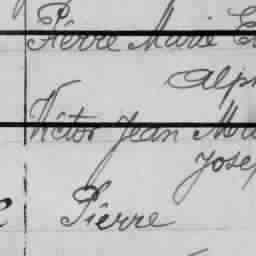 Pierre Marie E
Alph
Victor Jean Ma
Jose
Pierre